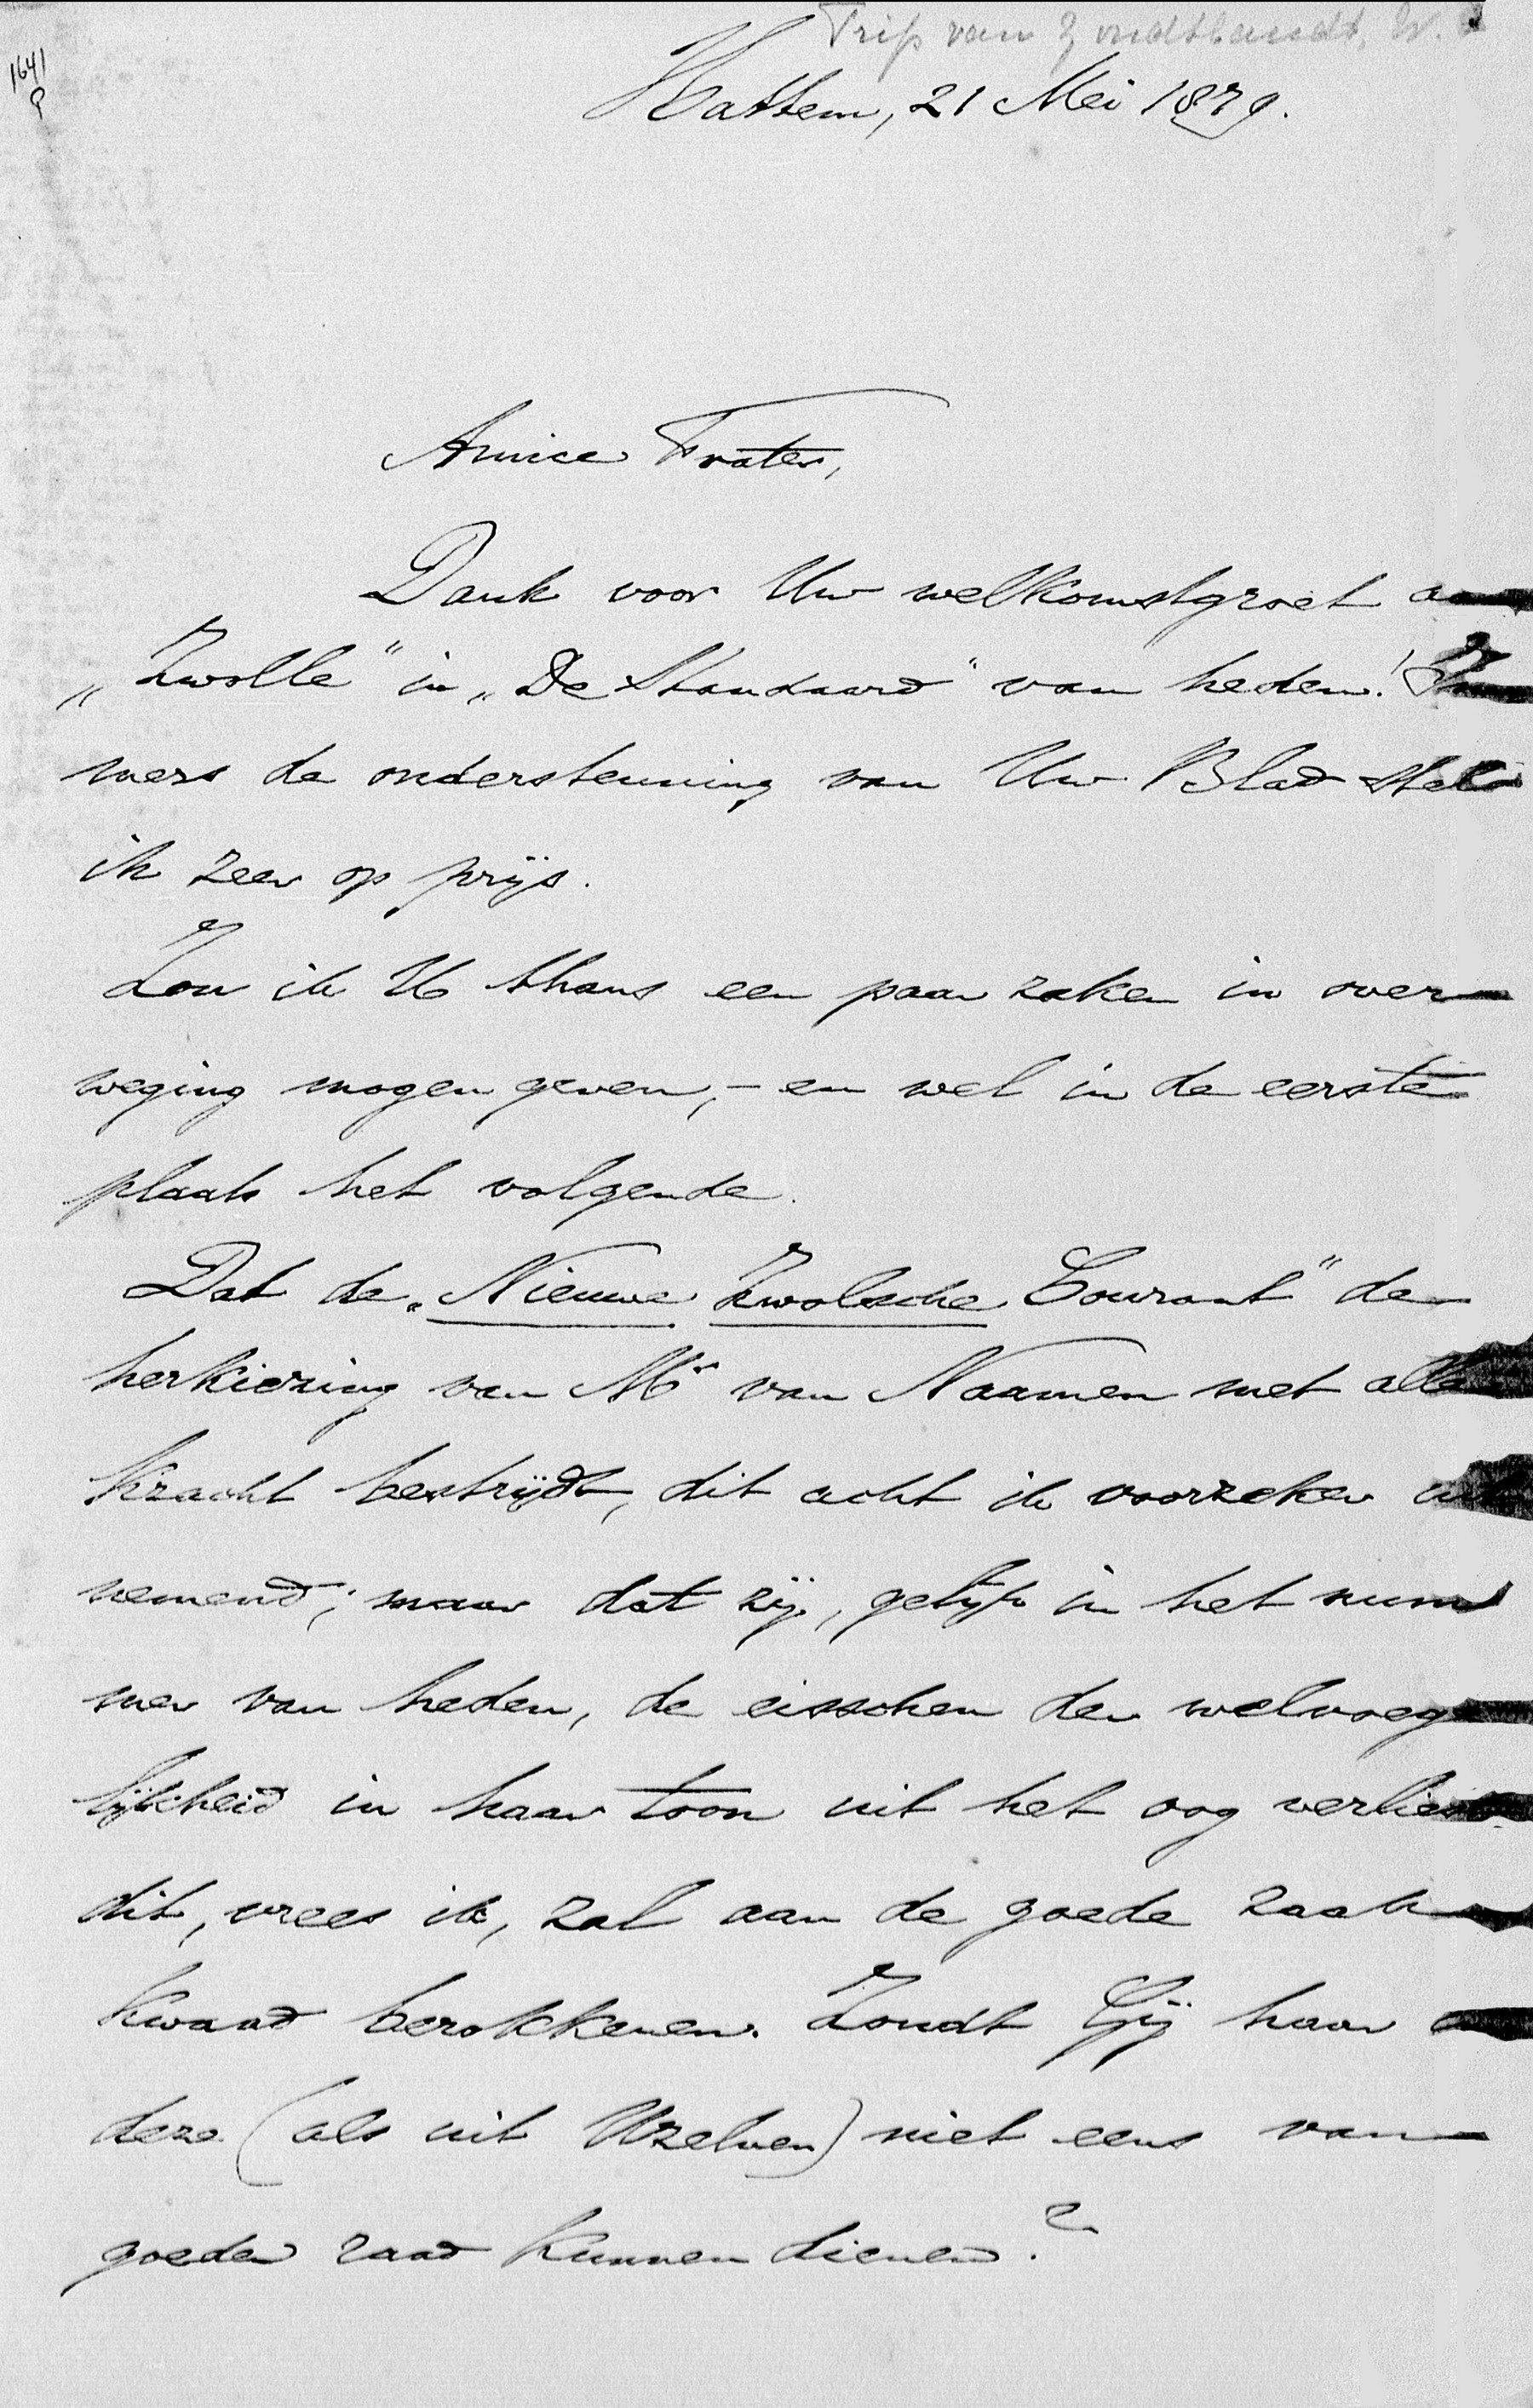 Trip van Zoudtlandt, W.
1641
Hattem, 21 Mei 1879.
Amice Frater,
Dank voor Uw welkomstgroet
„Zwolle" in „De Standaard" van heden! Im
mers de ondersteuning van Uw Blad stel
ik zeer op prijs.
Zou ik U thans een paar zaken in over-
weging mogen geven, - en wel in de eerste
plaats het volgende.
Dat de „Nieuwe Zwolsche Courant" de
herkiezing van Mr van Naamen met alle
kracht bestrijdt, dit acht ik voorzeker uit
nemend; maar dat zij, gelijk in het num
mer van heden, de eisschen der welvoege
lijkheid in haar toon uit het oog verliest
dit, vrees ik, zal aan de goede zaak
kwaad berokkenen. Zoudt Gij haar
deze (als uit Uzelven) niet eens van
goeden raad kunnen dienen?